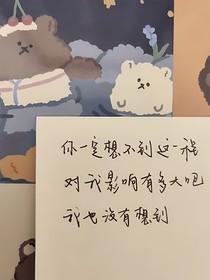 你一定想不到这一程
对我影响有多大吧
我也没有想到